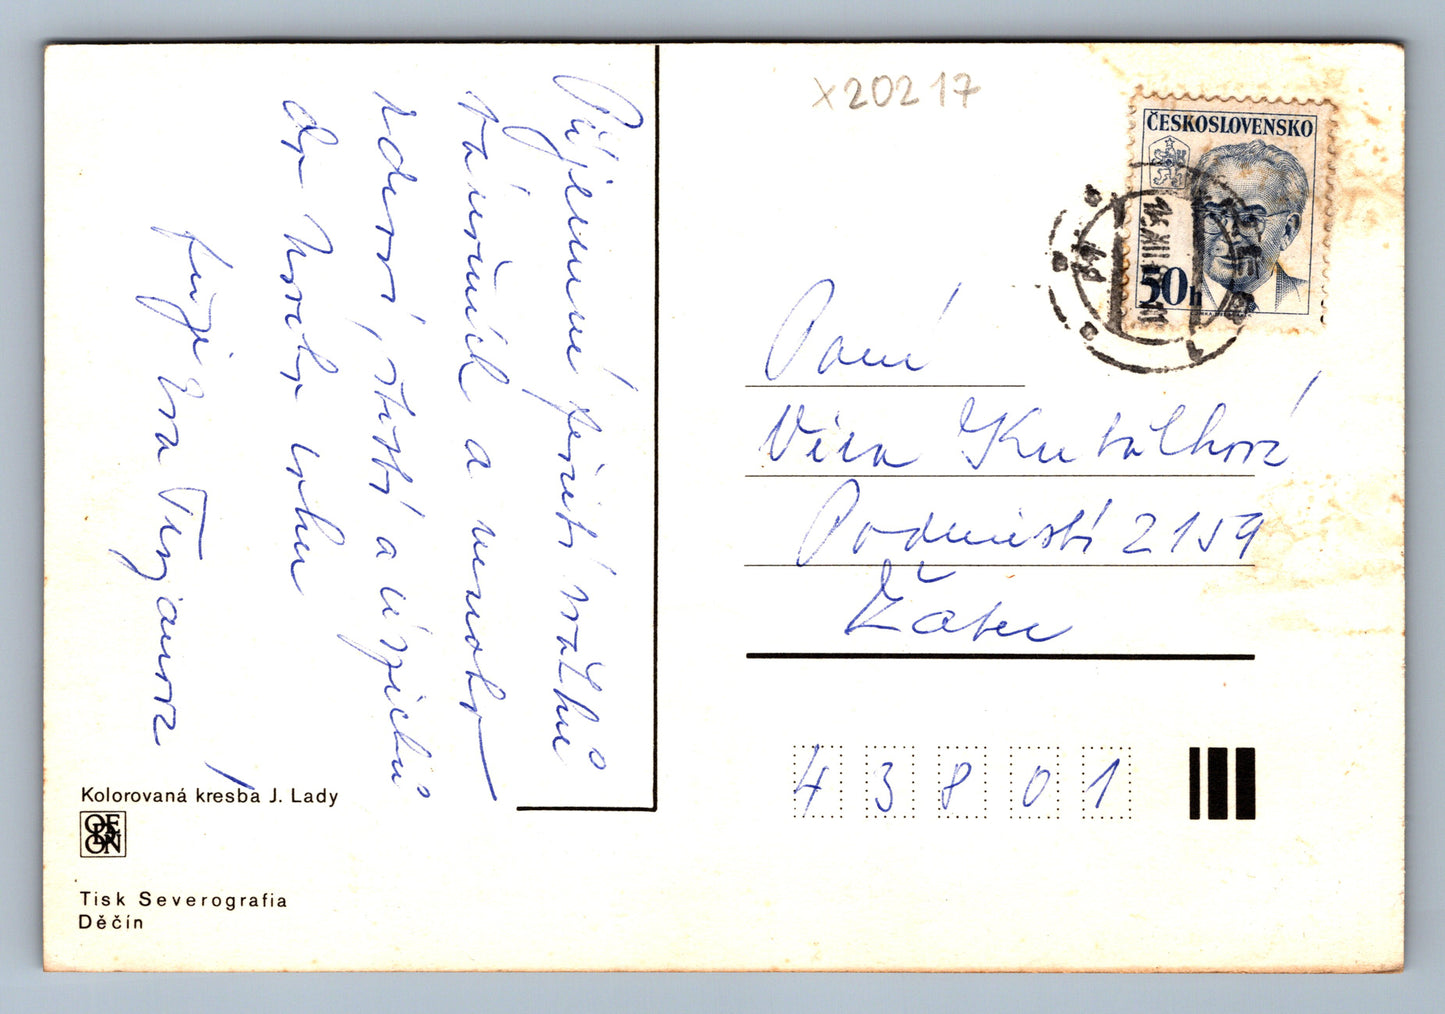 Příjemné prožití svátků
vánočních a mnoho
zdraví, štěstí a úspěchů
do Nového roku
přeje Eva
X20217
ČESKOSLOVENSKO
50h
Paní
Věra Kubálková
Podměstí 2159
Žatec
43801
Kolorovaná kresba J. Lady
ODEON
Tisk Severografia
Děčín